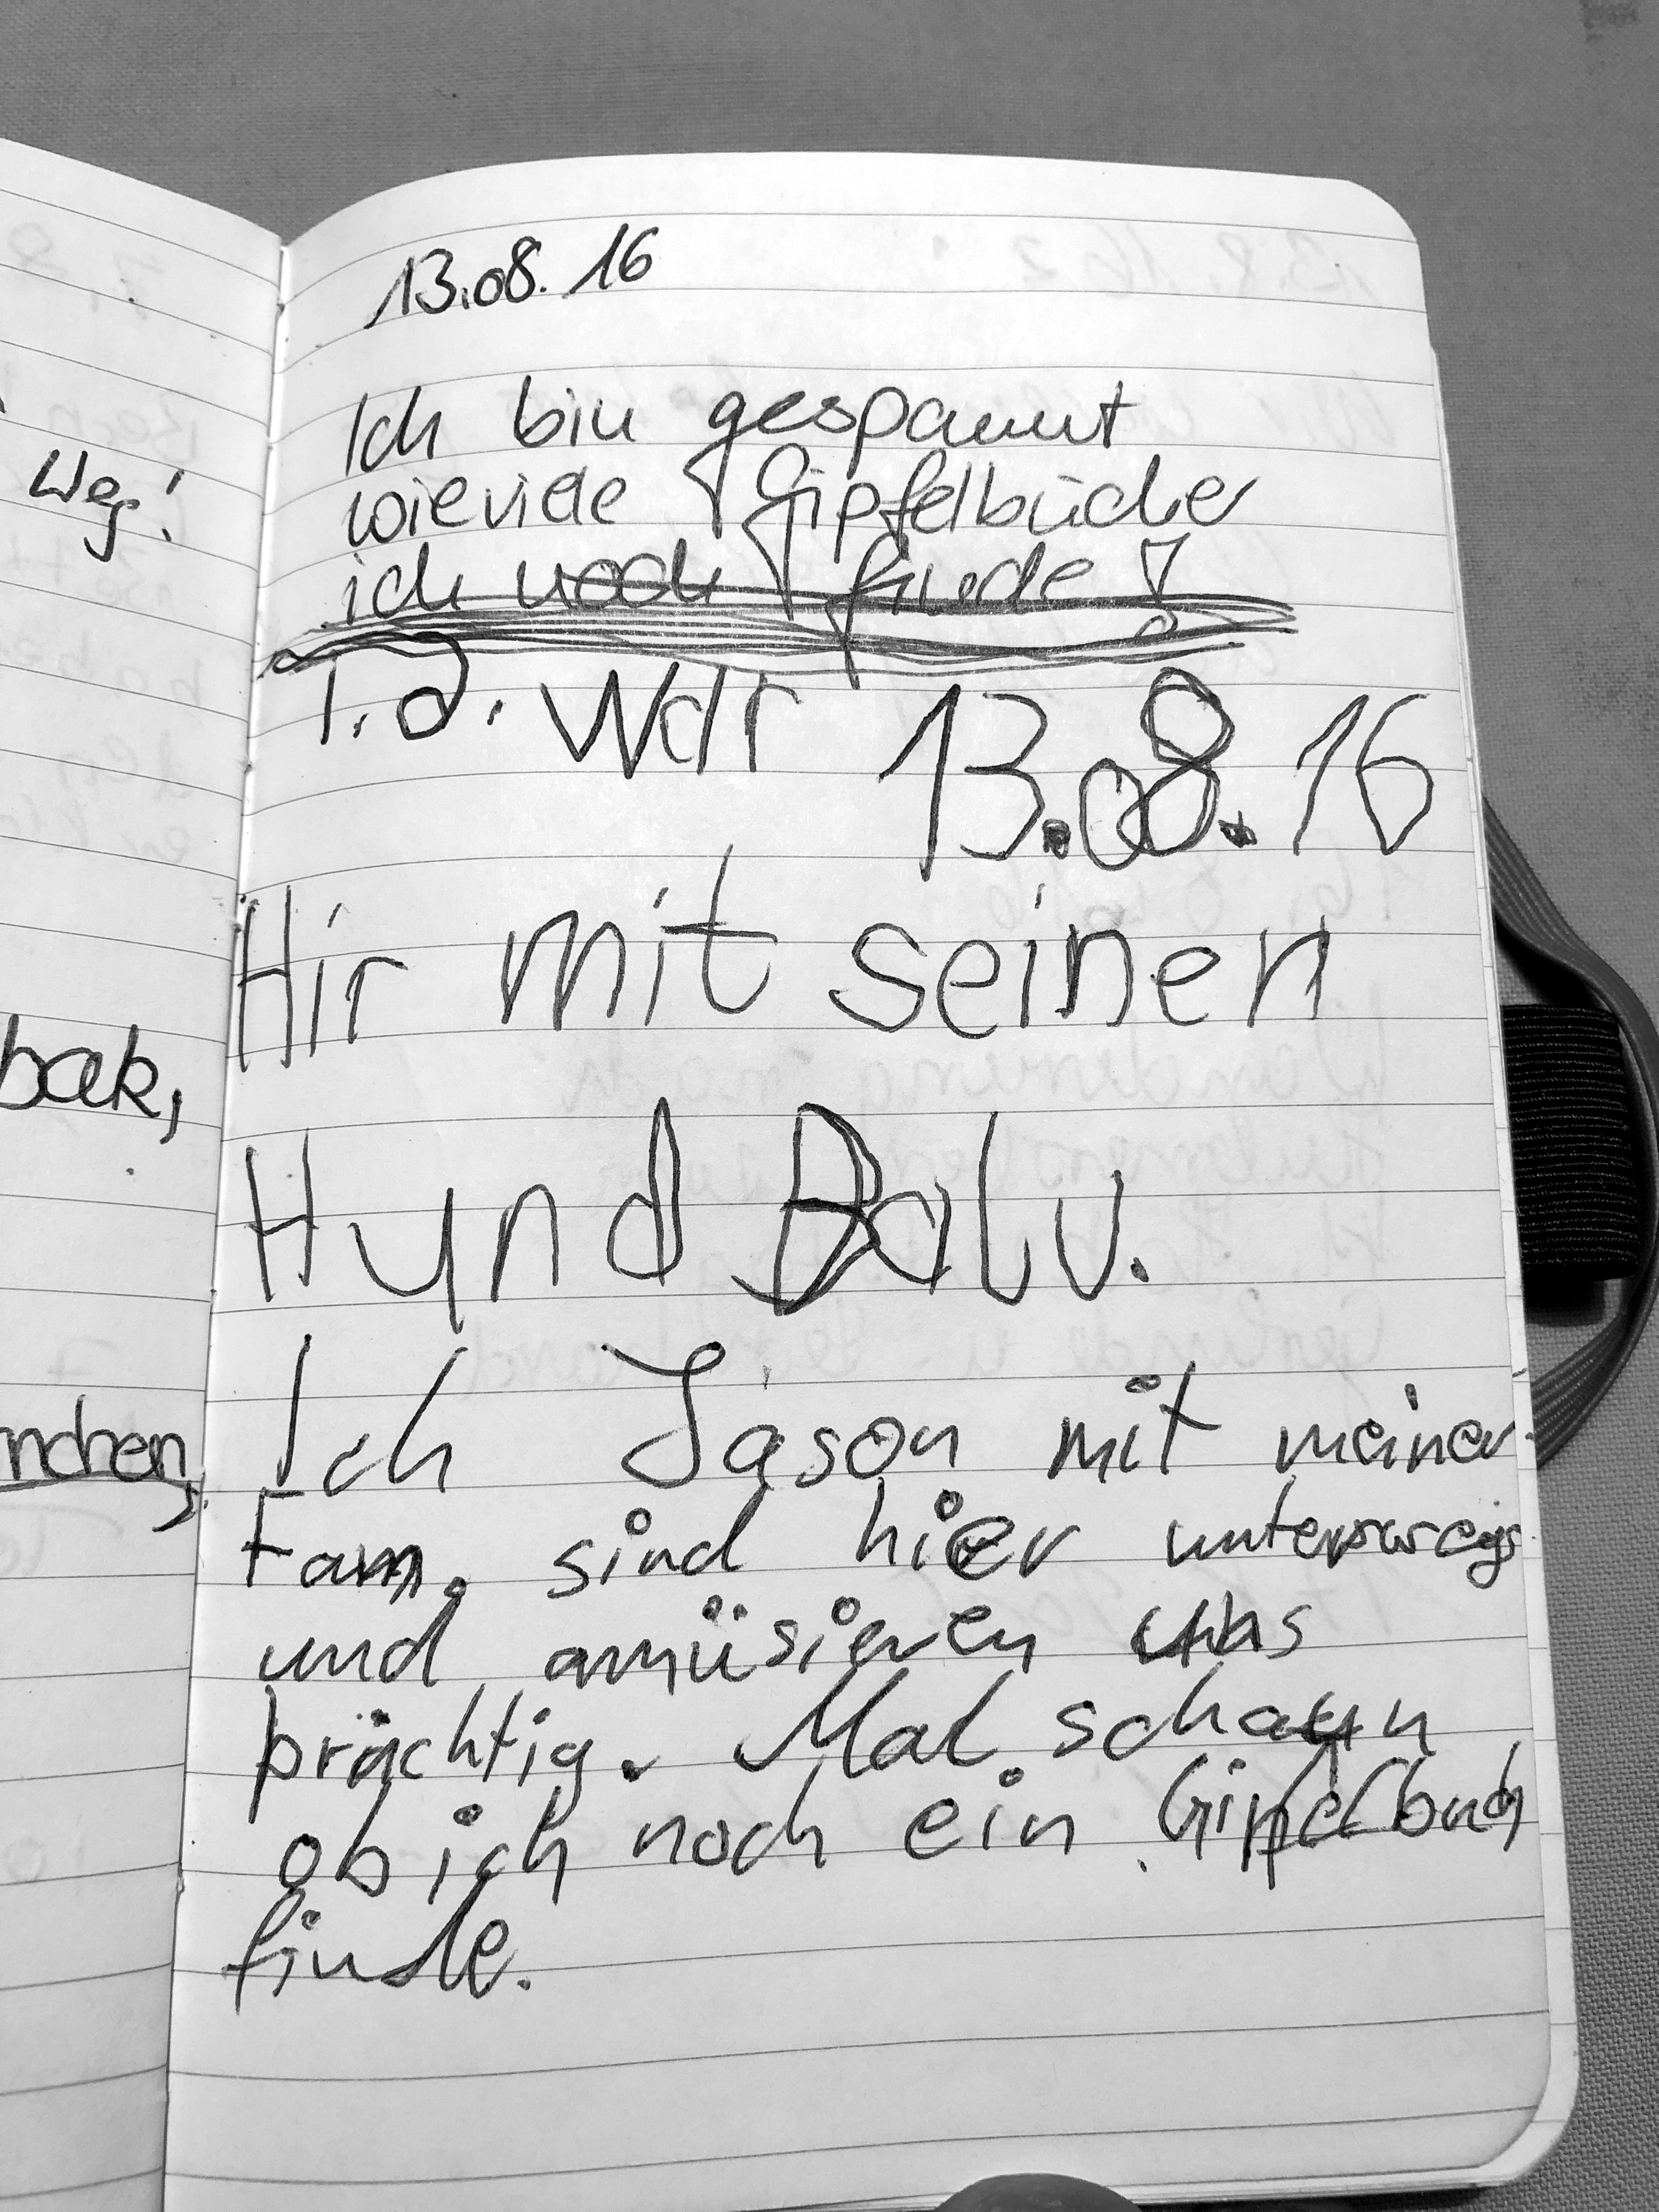 Weg!
bak,
nchen,
13.08.16
Ich bin gespannt
wieviele Gipfelbücher
ich noch finde!
T.d. War 13.08.16
Hir mit seinen
Hund Balu.
Ich Jason mit meiner
Fam. sind hier unterwegs
und amüsieren uns
prächtig. Mal schaun
ob ich noch ein Gipfelbuch
finde.